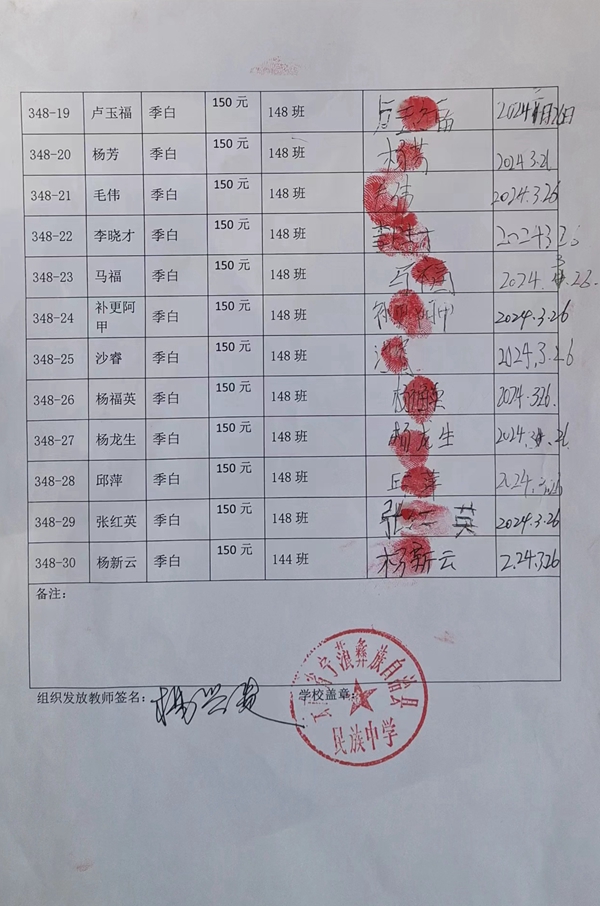 348-19 卢玉福 季白 150 元 148 班 卢玉福
348-20 杨芳 季白 150 元 148 班 杨芳 2024.3.26
348-21 毛伟 季白 150 元 148 班 伟 2024.3.26
348-22 李晓才 季白 150 元 148 班
348-23 马福 季白 150 元 148 班 马福
348-24 补更阿甲 季白 150 元 148 班 2024.3.26
348-25 沙睿 季白 150 元 148 班 2024.3.26
348-26 杨福英 季白 150 元 148 班 杨福英 2024.326.
348-27 杨龙生 季白 150 元 148 班 杨龙生
348-28 邱萍 季白 150 元 148 班 邱萍
348-29 张红英 季白 150 元 148 班 张红英 2024.3.26
348-30 杨新云 季白 150 元 144 班 杨新云 2.24.326
备注：
组织发放教师签名： 杨兴贵 学校盖章：
宁蒗彝族自治县
民族中学